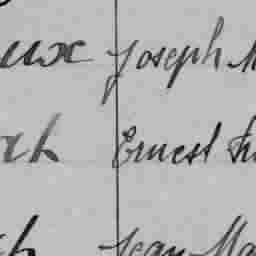 eux Joseph M
ch Ernest Fr
h Jean Ma